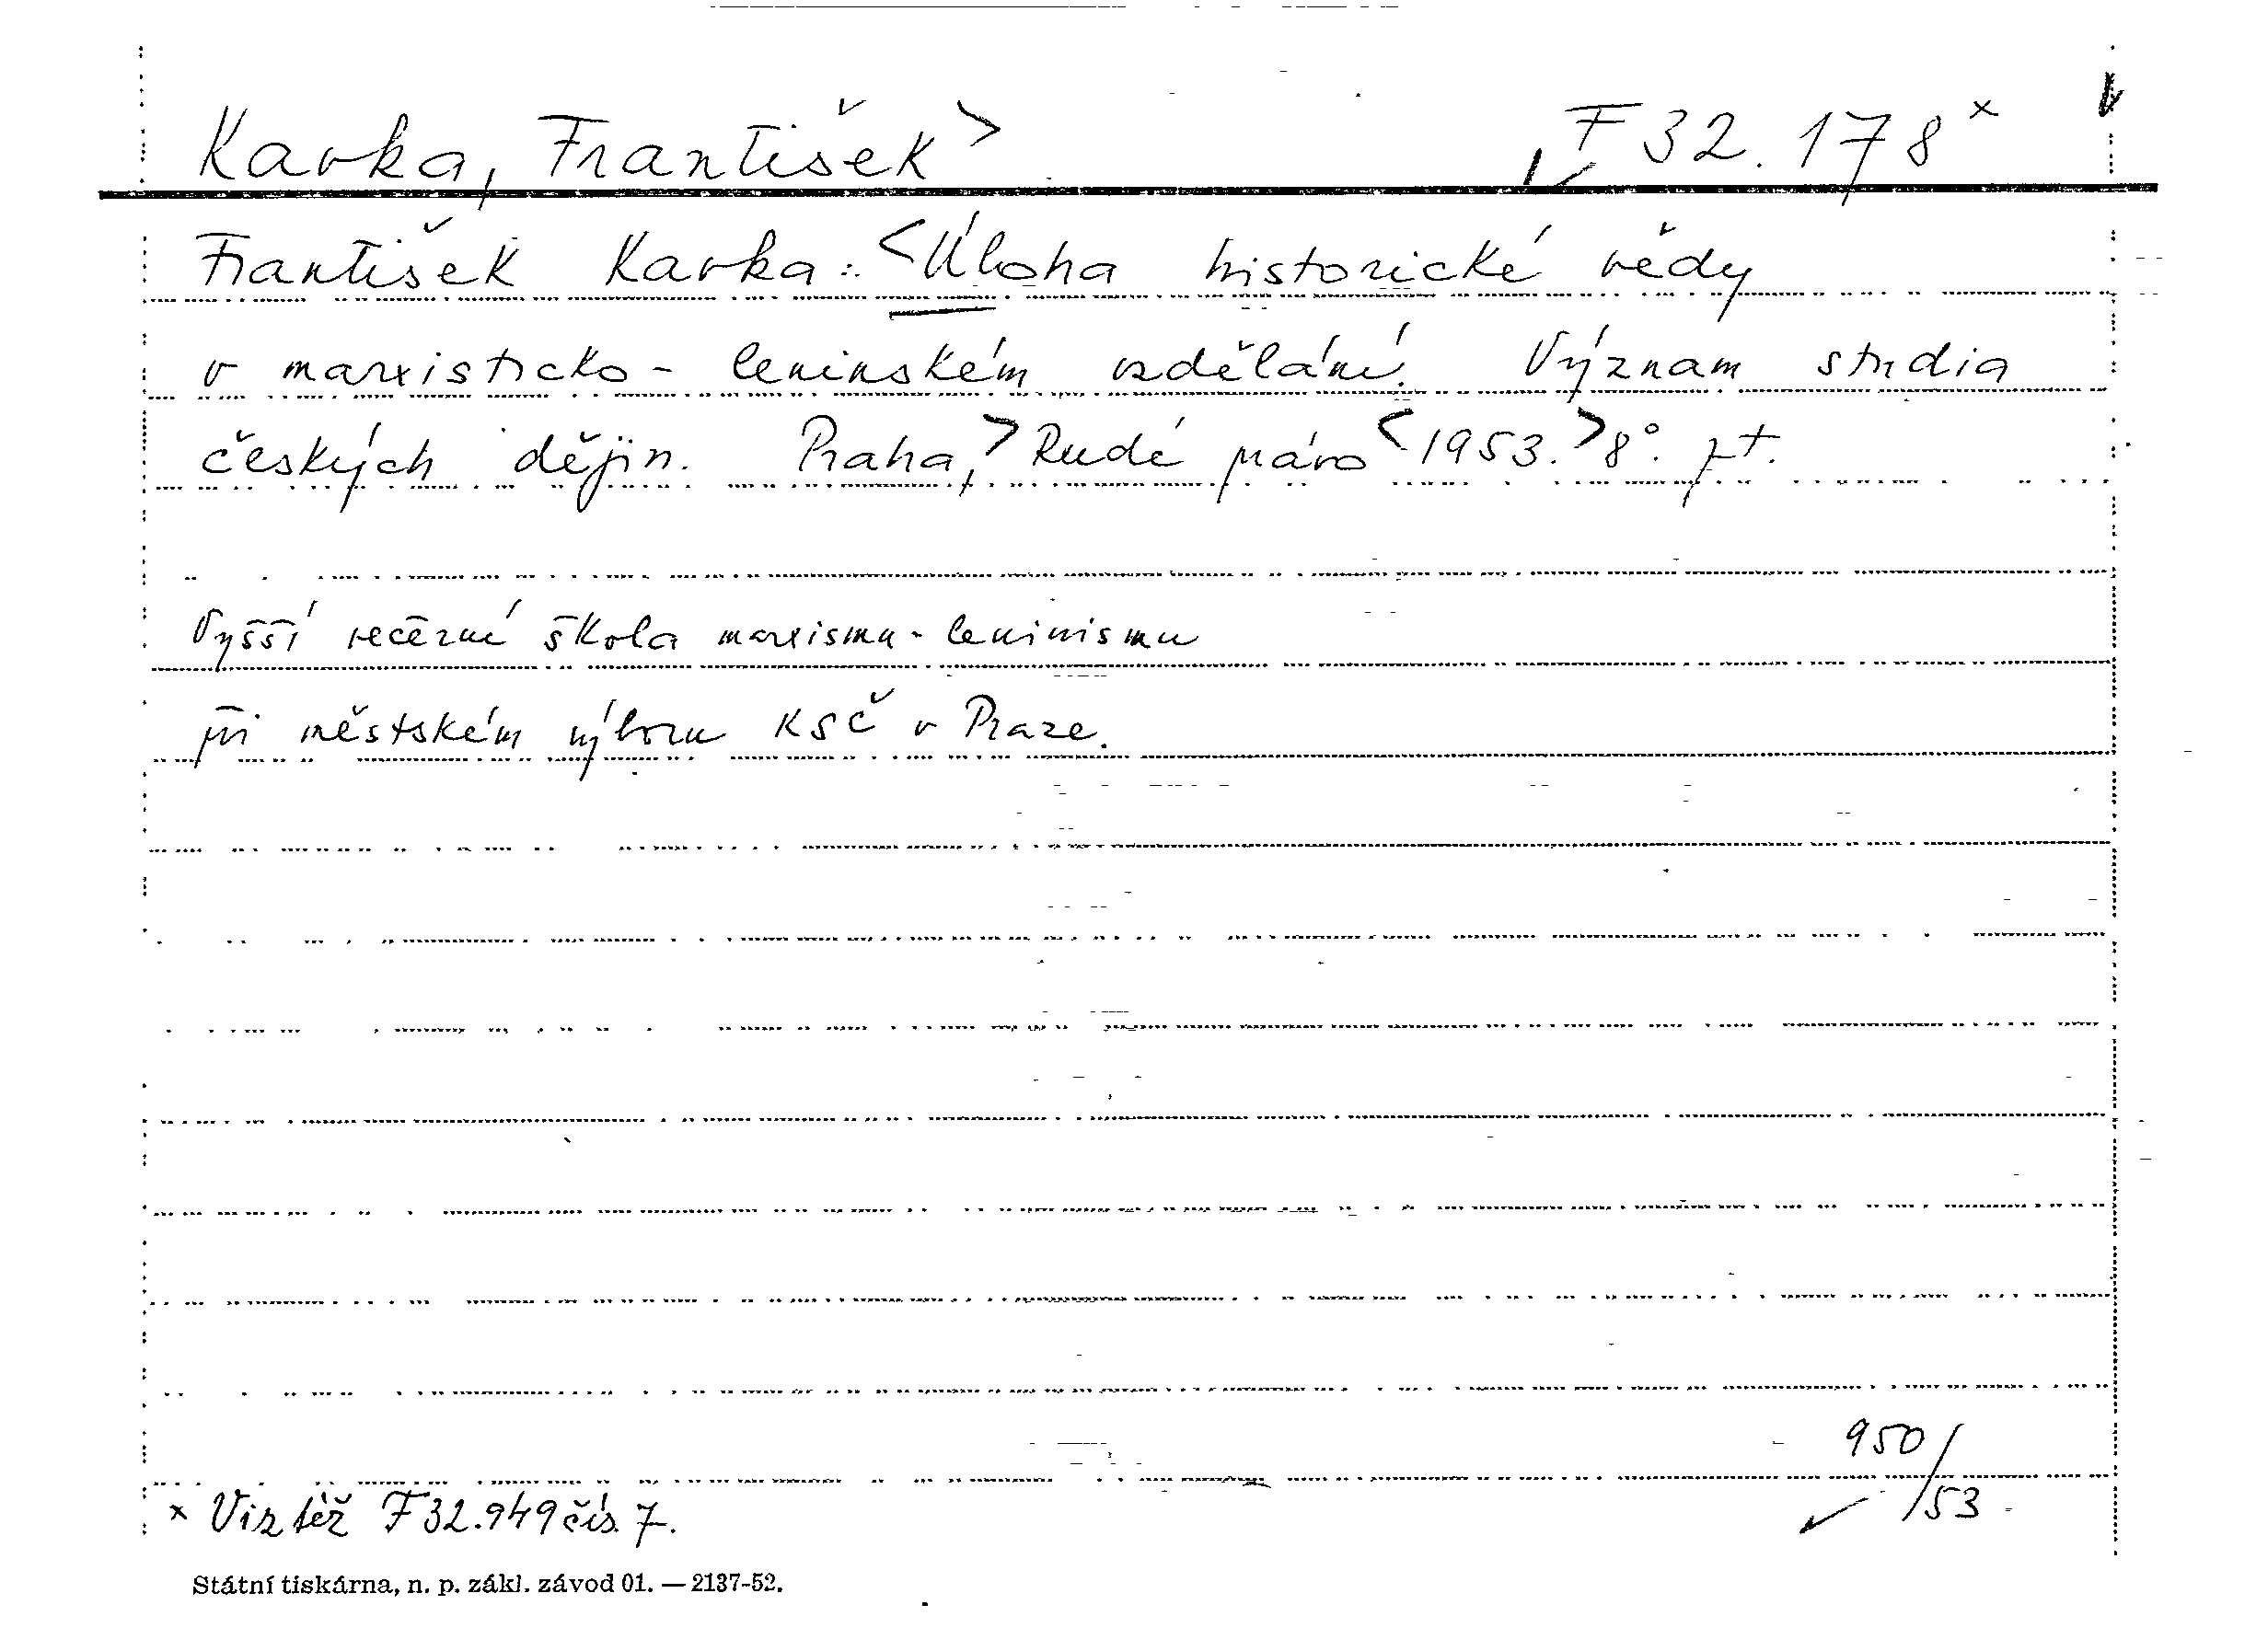 Kavka, František> F 32.178ˣ
František Kavka: <Úloha historické vědy
v marxisticko-leninském vzdělání. Význam studia
českých dějin. Praha,> Rudé právo <1953.> 8°.
Vyšší večerní škola marxismu-leninismu
při městském výboru KSČ v Praze.
950/
53
x Viz též F 32.949 čís. 7.
Státní tiskárna, n. p. zákl. závod 01. — 2137-52.